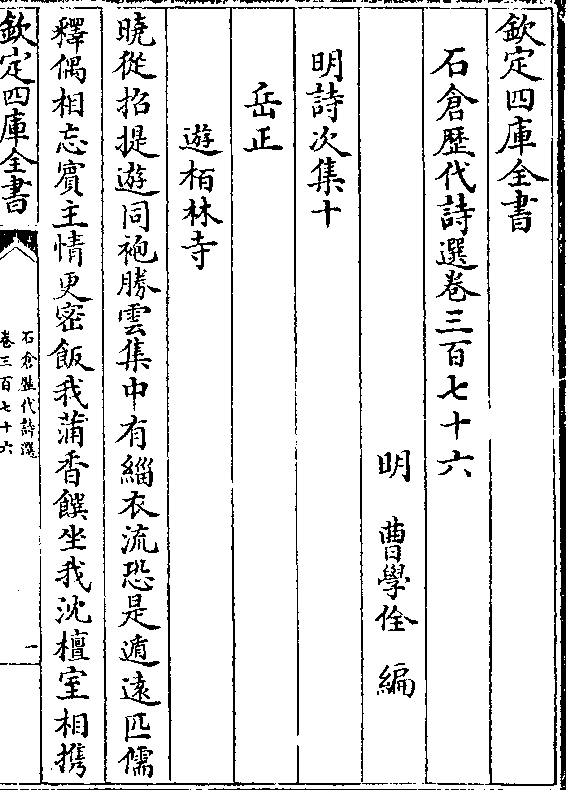 欽定四庫全書
石倉歴代詩選卷三百七十六
明 曹學佺 編
明詩次集十
岳正
遊栢林寺
曉從招提遊同袍勝雲集中有緇衣流恐是遁遠匹儒
釋偶相忘賓主情更密飯我蒲香饌坐我沈檀室相携
欽定四庫全書
石倉歴代詩選
卷三百七十六
一